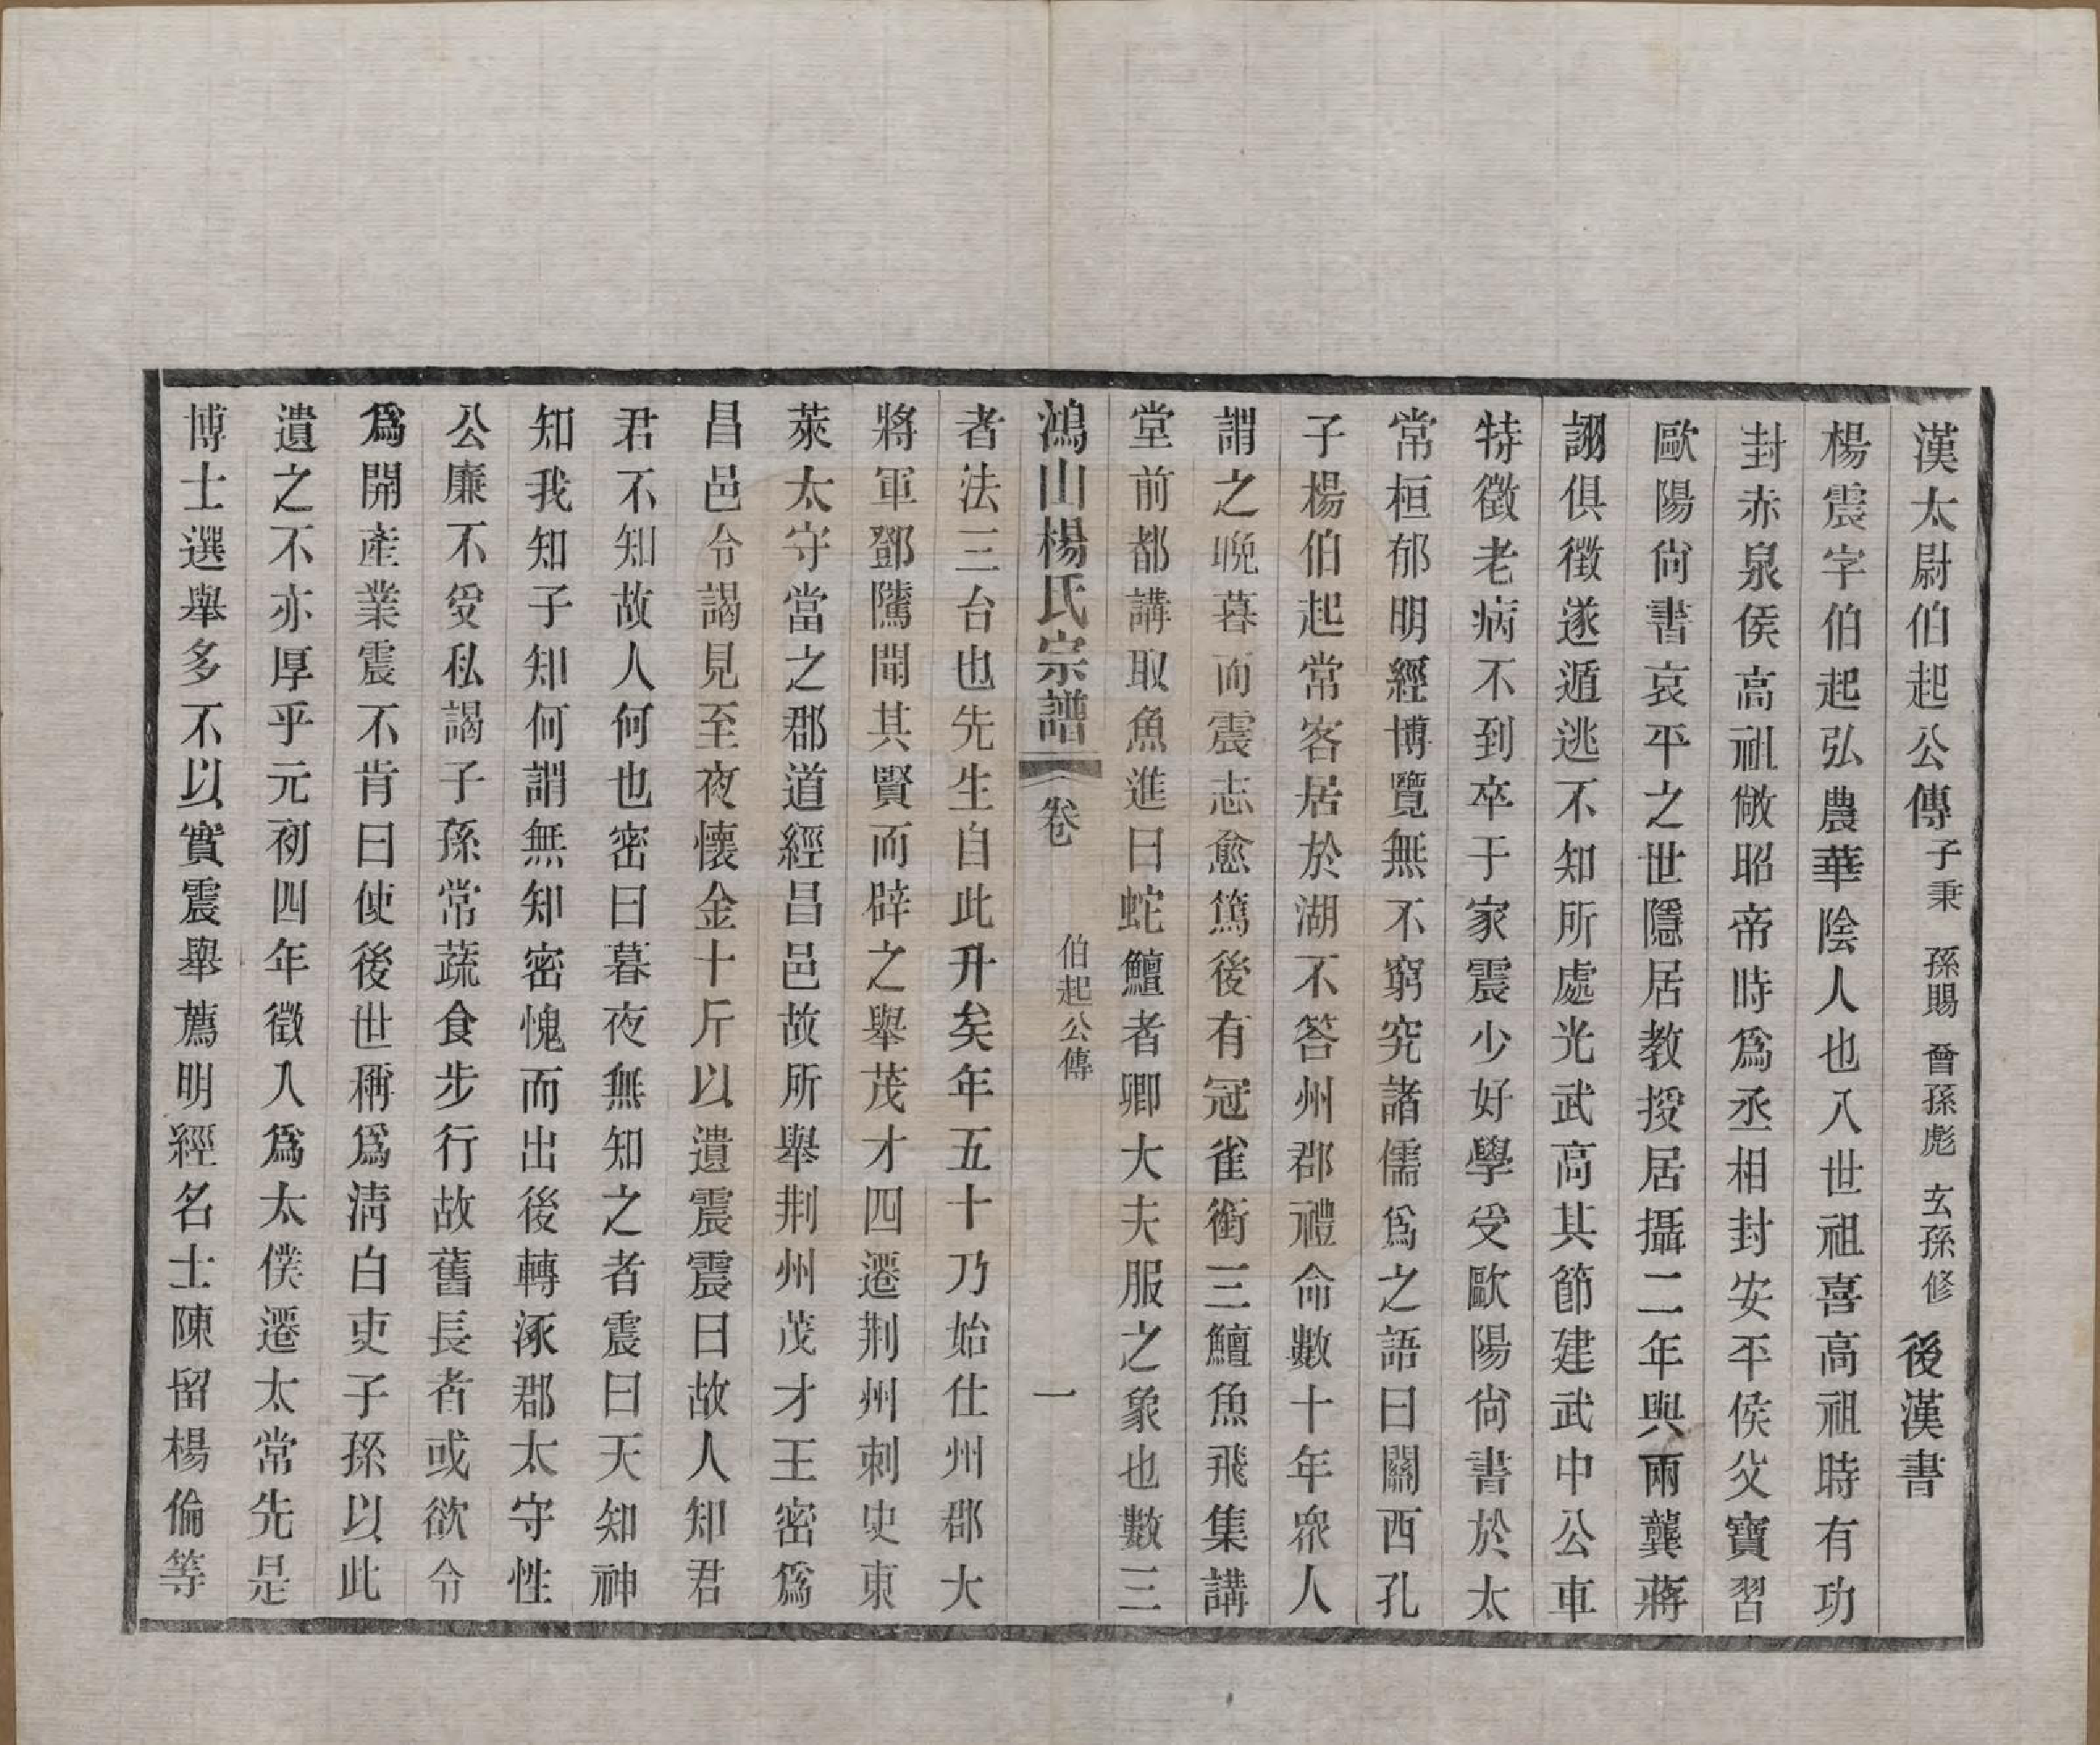 漢太尉伯起公傳子秉 孫賜 曾孫彪 玄孫修 後漢書
楊震字伯起弘農華陰人也八世祖喜高祖時有功
封赤泉侯高祖敞昭帝時爲丞相封安平侯父寶習
歐陽尙書哀平之世隱居教授居攝二年與兩龔蔣
詡俱徵遂遁逃不知所處光武高其節建武中公車
特徵老病不到卒于家震少好學受歐陽尙書於太
常桓郁明經博覽無不窮究諸儒爲之語曰關西孔
子楊伯起常客居於湖不答州郡禮命數十年衆人
謂之晩暮而震志愈篤後有冠雀銜三鱣魚飛集講
堂前都講取魚進曰蛇鱣者卿大夫服之象也數三
鴻山楊氏宗譜 卷 伯起公傳 一
者法三台也先生自此升矣年五十乃始仕州郡大
將軍鄧隲聞其賢而辟之舉茂才四遷荆州刺史東
萊太守當之郡道經昌邑故所舉荆州茂才王密爲
昌邑令謁見至夜懷金十斤以遺震震曰故人知君
君不知故人何也密曰暮夜無知之者震曰天知神
知我知子知何謂無知密愧而出後轉涿郡太守性
公廉不受私謁子孫常蔬食步行故舊長者或欲令
爲開產業震不肯曰使後世稱爲淸白吏子孫以此
遺之不亦厚乎元初四年徵入爲太僕遷太常先是
博士選舉多不以實震舉薦明經名士陳留楊倫等